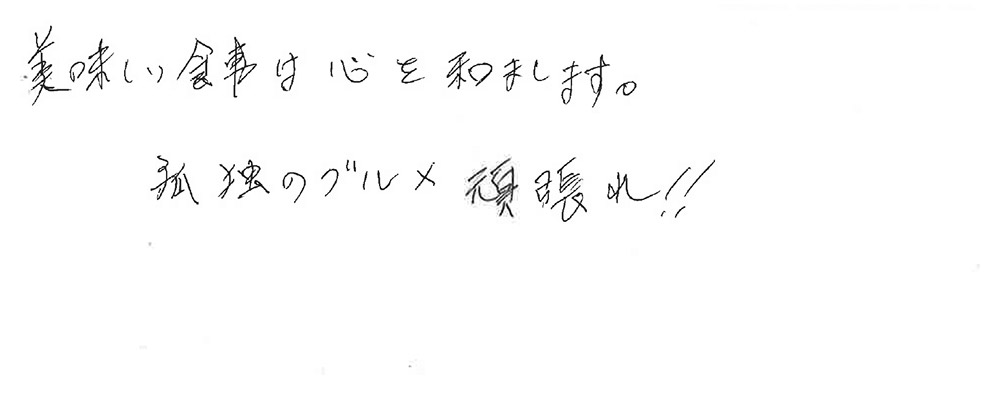 美味しい食事は心を和まします。
孤独のグルメ頑張れ!!